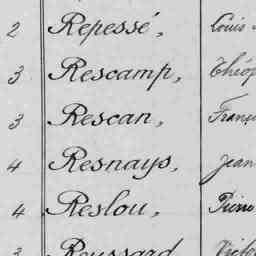 2 Repessé, Louis
3 Rescamp, Théop
3 Rescan, Franç
4 Resnays, Jean
4 Reslou, Pierre
3 Roussard Victo